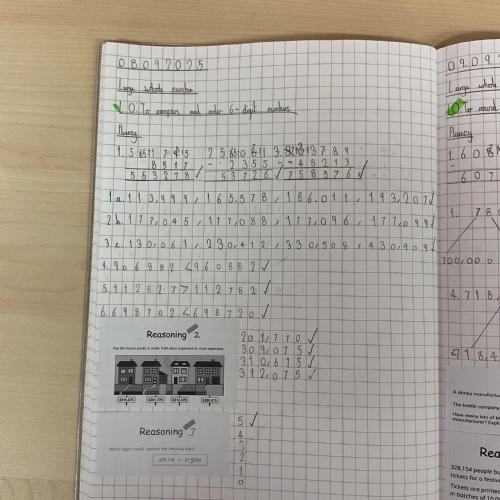 08092025
Large whole number
LO: To compare and order 6-digit numbers
Fluency
8517
2355
45213
553278 ✓ 53726 ✓ 758576 ✓
1a. 113,999, 165,578, 186,011, 193,207 ✓
2b. 177,045, 177,088, 177,096, 177,099 ✓
3c. 130,061, 230,412, 330,508, 430,409 ✓
4. 906882 < 960882 ✓
5. 112827 > 112782 ✓
6. 698702 < 698720 ✓
Reasoning 2
Put the house prices in order from least expensive to most expensive.
201,770 ✓
309,075 ✓
310,675 ✓
312,075 ✓
Reasoning 3
What digits could replace the missing digit?
5 ✓
4
3
2
1
0
09.09.
Large
LO: To round
Fluency
1. 608
607
1. 78
700,000
4. 718,
718,4
A drinks manufactu
The bottle company
How many lots of b
manufacturer? Expl
Rea
328,154 people b
tickets for a festiv
Tickets are printed
in batches of 10,0